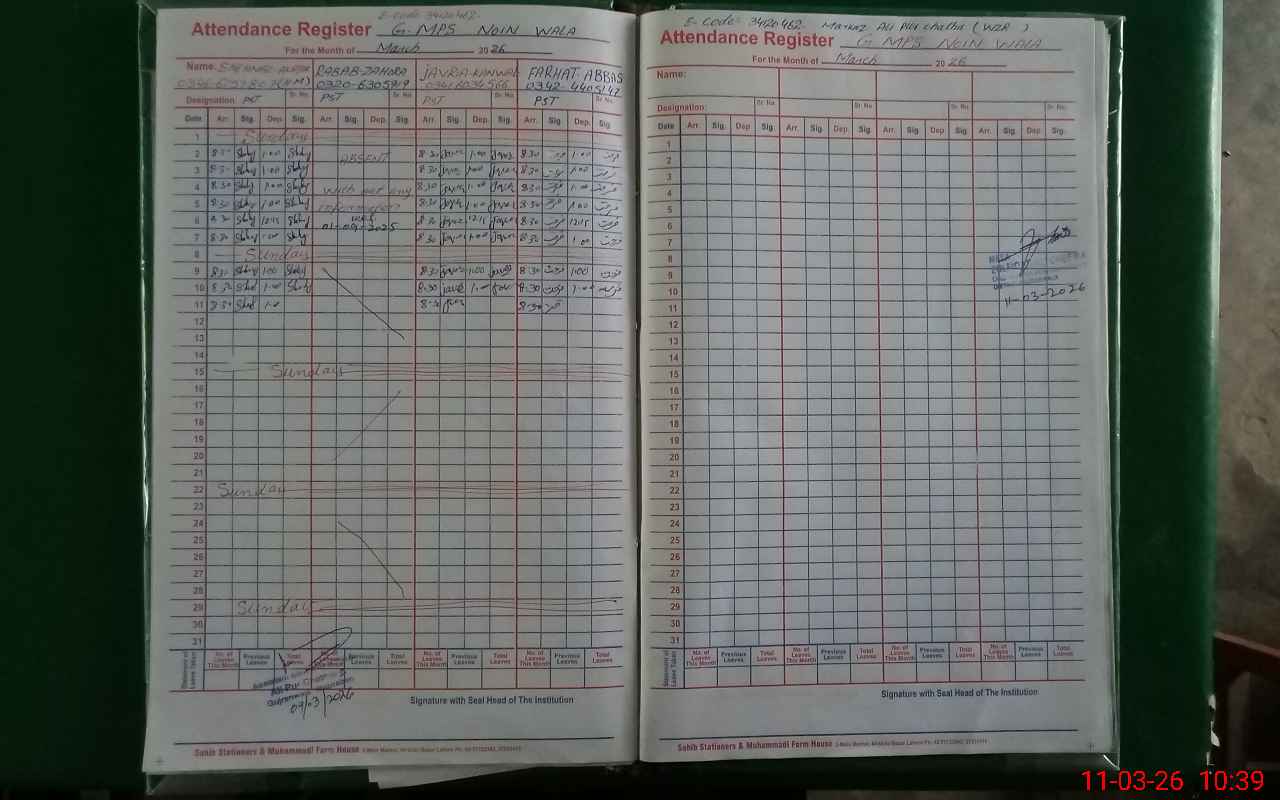 E-code 34120462-
Attendance Register G. MPS NOIN WALA
For the Month of March 2026
Name: RABAB-ZAHORA JAVRIA-KANWAL FARHAT ABBAS
0320-6305919 0342-4405147
Designation: PST Sr. No. PST Sr. No. PST Sr. No. PST Sr. No.
Date Arr. Sig. Dep. Sig. Arr. Sig. Dep. Sig. Arr. Sig. Dep. Sig. Arr. Sig. Dep. Sig.
1 Sundays
2 1:00 ABSENT 8:30 1:00 8:30 1:00
3 8:30 1:00 8:30 1:00 8:30 1:00
4 8:30 1:00 with out any 8:30 1:00 8:30 1:00
5 8:30 1:00 information 8:30 1:00 8:30 1:00
6 8:30 12:15 w.e.f 8:30 12:15 8:30 12:15
01-09-2025
7 8:30 1:00 8:30 1:00 8:30 1:00
8 Sundays
9 8:30 1:00 8:30 1:00 8:30 1:00
10 8:30 1:00 8:30 1:00 8:30 1:00
11 8:30 1:00 8:30 8:30
12
13
14
15 Sundays
16
17
18
19
20
21
22 Sunday
23
24
25
26
27
28
29 Sundays
30
31
Statement of Leave Taken No. of Leaves This Month Previous Leaves Total Leaves No. of Leaves This Month Previous Leaves Total Leaves No. of Leaves This Month Previous Leaves Total Leaves No. of Leaves This Month Previous Leaves Total Leaves
07/03/2026
Signature with Seal Head of The Institution
Sohib Stationers & Muhammadi Farm House
E-Code: 34120462- Markaz Ali Pur Chatha (WZR)
Attendance Register G MPS NOIN WALA
For the Month of March 2026
Name:
Designation: Sr. No. Sr. No. Sr. No. Sr. No.
Date Arr. Sig. Dep. Sig. Arr. Sig. Dep. Sig. Arr. Sig. Dep. Sig. Arr. Sig. Dep. Sig.
1
2
3
4
5
6
7
8
9
10
11
11-03-2026
12
13
14
15
16
17
18
19
20
21
22
23
24
25
26
27
28
29
30
31
Statement of Leave Taken No. of Leaves This Month Previous Leaves Total Leaves No. of Leaves This Month Previous Leaves Total Leaves No. of Leaves This Month Previous Leaves Total Leaves No. of Leaves This Month Previous Leaves Total Leaves
Signature with Seal Head of The Institution
Sohib Stationers & Muhammadi Farm House
11-03-26 10:39